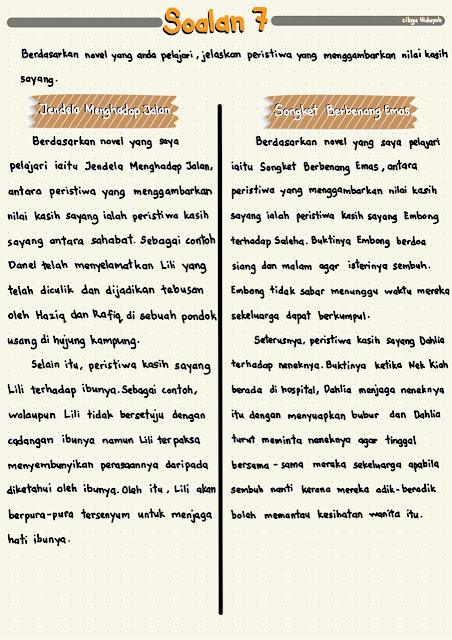 Soalan 7
Cikgu Hidayah
Berdasarkan novel yang anda pelajari, jelaskan peristiwa yang menggambarkan nilai kasih
sayang.
Jendela Menghadap Jalan
Berdasarkan novel yang saya
pelajari iaitu Jendela Menghadap Jalan,
antara peristiwa yang menggambarkan
nilai kasih sayang ialah peristiwa kasih
sayang antara sahabat. Sebagai contoh
Danel telah menyelamatkan Lili yang
telah diculik dan dijadikan tebusan
oleh Haziq dan Rafiq di sebuah pondok
usang di hujung kampung.
Selain itu, peristiwa kasih sayang
Lili terhadap ibunya. Sebagai contoh,
walaupun Lili tidak bersetuju dengan
cadangan ibunya namun Lili terpaksa
menyembunyikan perasaannya daripada
diketahui oleh ibunya. Oleh itu, Lili akan
berpura-pura tersenyum untuk menjaga
hati ibunya.
Songket Berbenang Emas
Berdasarkan novel yang saya pelajari
iaitu Songket Berbenang Emas, antara
peristiwa yang menggambarkan nilai kasih
sayang ialah peristiwa kasih sayang Embong
terhadap Saleha. Buktinya Embong berdoa
siang dan malam agar isterinya sembuh.
Embong tidak sabar menunggu waktu mereka
sekeluarga dapat berkumpul.
Seterusnya, peristiwa kasih sayang Dahlia
terhadap neneknya. Buktinya ketika Nek Kiah
berada di hospital, Dahlia menjaga neneknya
itu dengan menyuapkan bubur dan Dahlia
turut meminta neneknya agar tinggal
bersama-sama mereka sekeluarga apabila
sembuh nanti kerana mereka adik-beradik
boleh memantau kesihatan wanita itu.